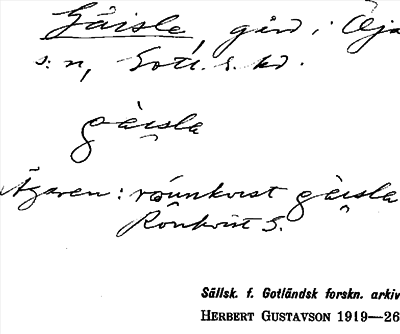 Gåisle, gård i Öja
s:n, Gotl. s. hd.
gàisla
Ägaren: röunkvist gàisla
Rönkvist S.
Sällsk. f. Gotländsk forskn. arkiv
HERBERT GUSTAVSON 1919—26